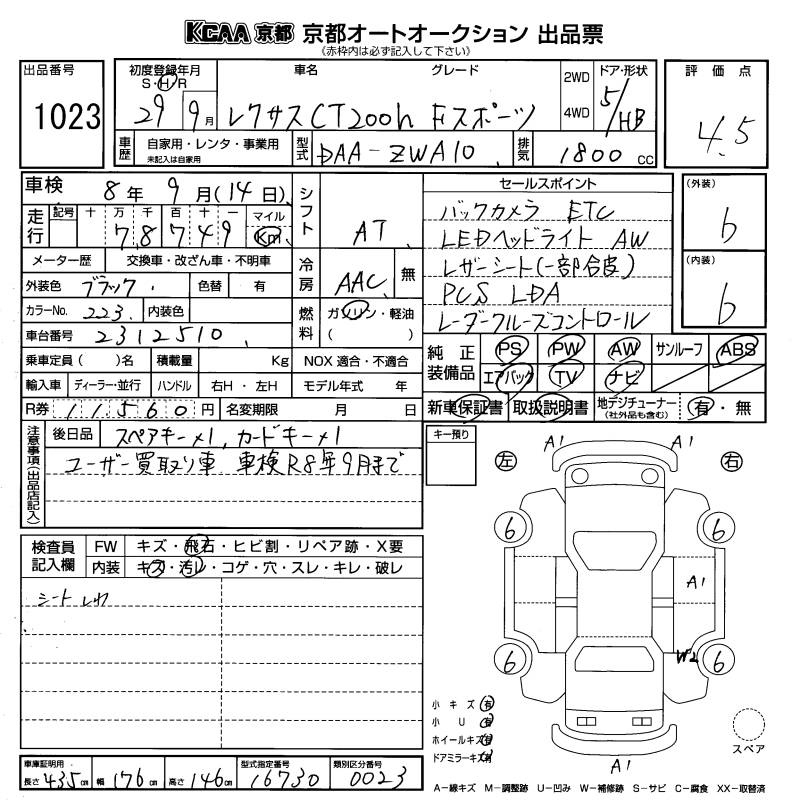 KCAA 京都 京都オートオークション 出品票
(赤枠内は必ず記入して下さい)
出品番号
1023
初度登録年月
S・H・R
29年9月
車名 グレード
レクサスCT200h Fスポーツ
2WD
4WD
ドア・形状
5/HB
評価点
4.5
車歴
自家用・レンタ・事業用
未記入は自家用
型式
DAA-ZWA10
排気
1800 cc
車検 8年 9月(14日)
走行
記号 十 万 千 百 十 一 マイル
7 8 7 4 9 Km
シフト
AT
セールスポイント
バックカメラ ETC
LEDヘッドライト AW
レザーシート(一部合皮)
PCS LDA
レーダークルーズコントロール
(外装)
6
(内装)
6
メーター歴 交換車・改ざん車・不明車
冷房
AAC
無
外装色 ブラック 色替 有
カラーNo. 223 内装色
燃料
ガソリン・軽油
( )
車台番号 2312510
乗車定員( )名 積載量 Kg NOX 適合・不適合
輸入車 ディーラー・並行 ハンドル 右H・左H モデル年式 年
R券 11,560円 名変期限 月 日
純正装備品
PS PW AW サンルーフ ABS
エアバック TV ナビ
新車保証書 取扱説明書 地デジチューナー
(社外品も含む)
有・無
注意事項(出品店記入)
後日品 スペアキー×1, カードキー×1
ユーザー買取り車 車検R8年9月まで
キー預り
左
右
A1
A1
6
6
A1
6
W2
6
A1
スペア
検査員記入欄
FW キズ・飛石・ヒビ割・リペア跡・X要
内装 キズ・汚レ・コゲ・穴・スレ・キレ・破レ
シート しわ
小キズ 有
小U 有
ホイールキズ 有
ドアミラーキズ 有
車庫証明用
長さ 435cm 幅 176cm 高さ 146cm
型式指定番号
16730
類別区分番号
0023
A-線キズ M-調整跡 U-凹み W-補修跡 S-サビ C-腐食 XX-取替済